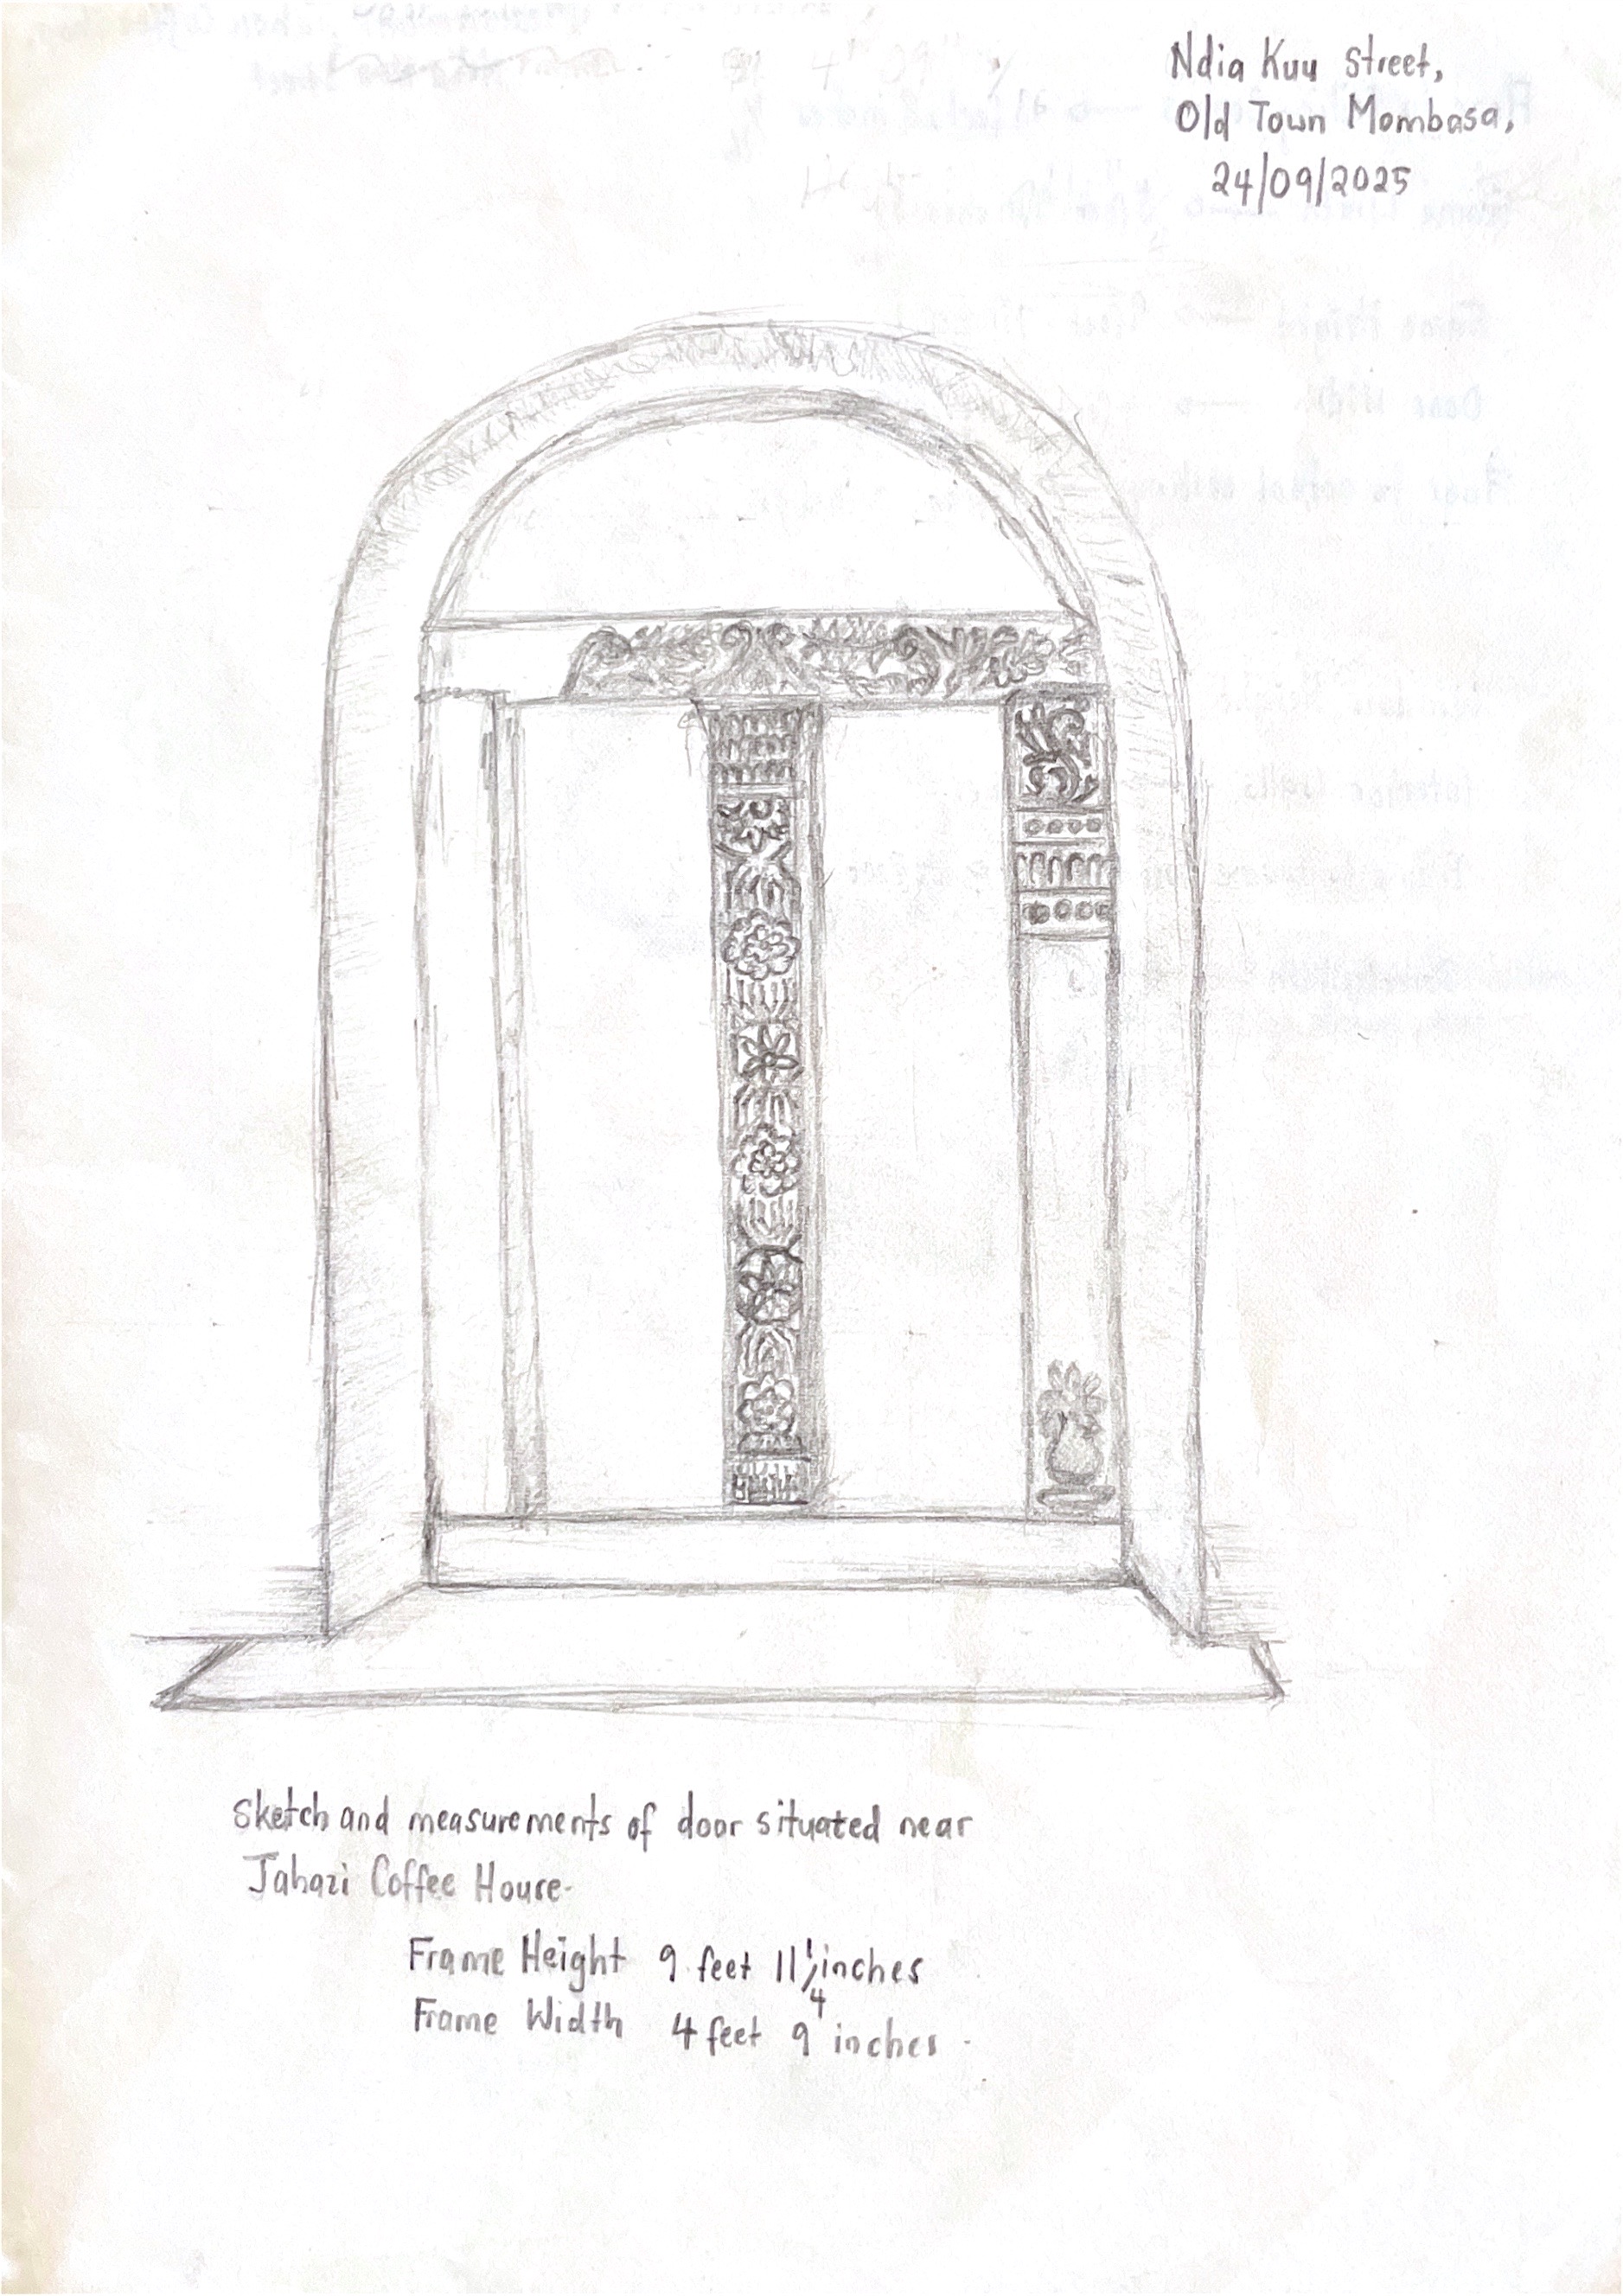 Ndia Kuu Street,
Old Town Mombasa,
24/09/2025
Sketch and measurements of door situated near
Jahazi Coffee House.
Frame Height 9 feet 11 1/4 inches
Frame Width 4 feet 9 inches.